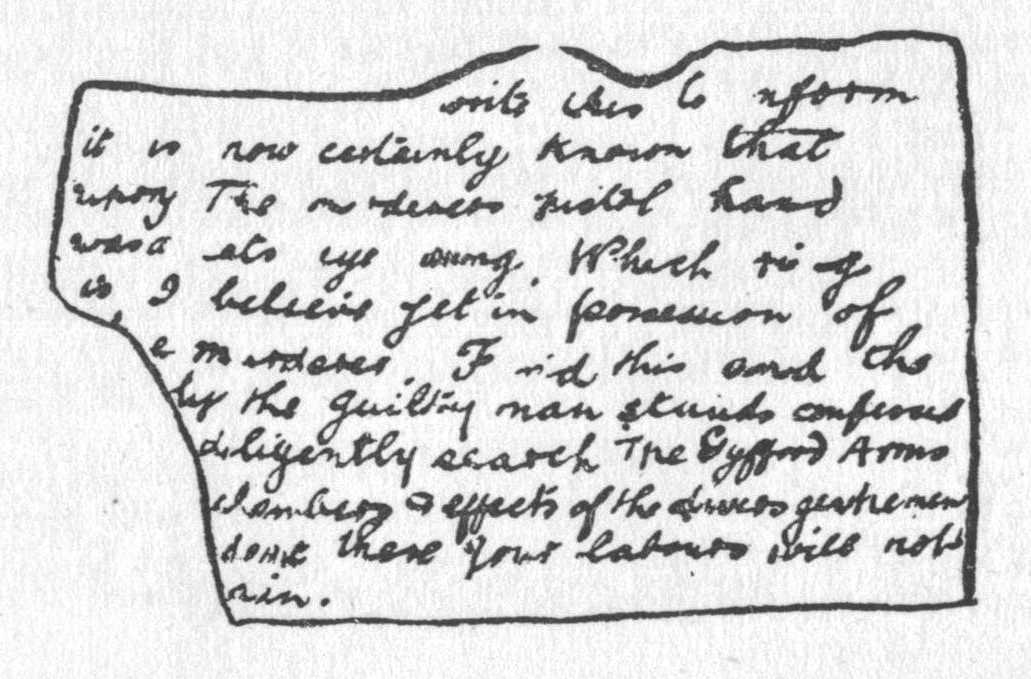 write this to nform
it is now certainly known that
upon The murderers pistol hand
was a ring Which ri g
is I believe yet in possession of
e murderer. F nd this and the
by the guilty man stands confessed
diligently search The Gyfford Arms
chambers & effects of the divers gentlemen
there your labours will not
ain.